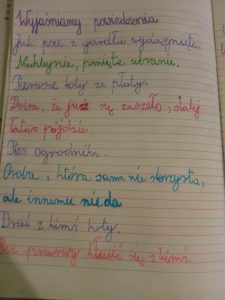 Wyjaśniamy powiedzenia
Jak psu z gardła wyciągnięte.
Niechlujnie, pomięte ubranie.
Pierwsze koty za płoty.
Dobra, że już się zaczęło, dalej
łatwo pójdzie.
Pies ogrodnika.
Osoba, która sama nie skorzysta,
ale innemu nie da
Drzeć z kimś koty.
Bez przerwy kłócić się z kimś.